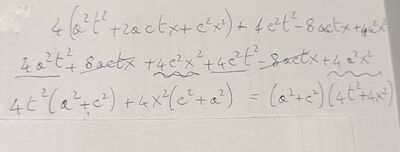 4(a²t²+2actx+c²x²) + 4c²t²-8actx+4a²x²
4a²t²+8actx+4c²x²+4c²t²-8actx+4a²x²
4t²(a²+c²)+4x²(c²+a²) = (a²+c²)(4t²+4x²)